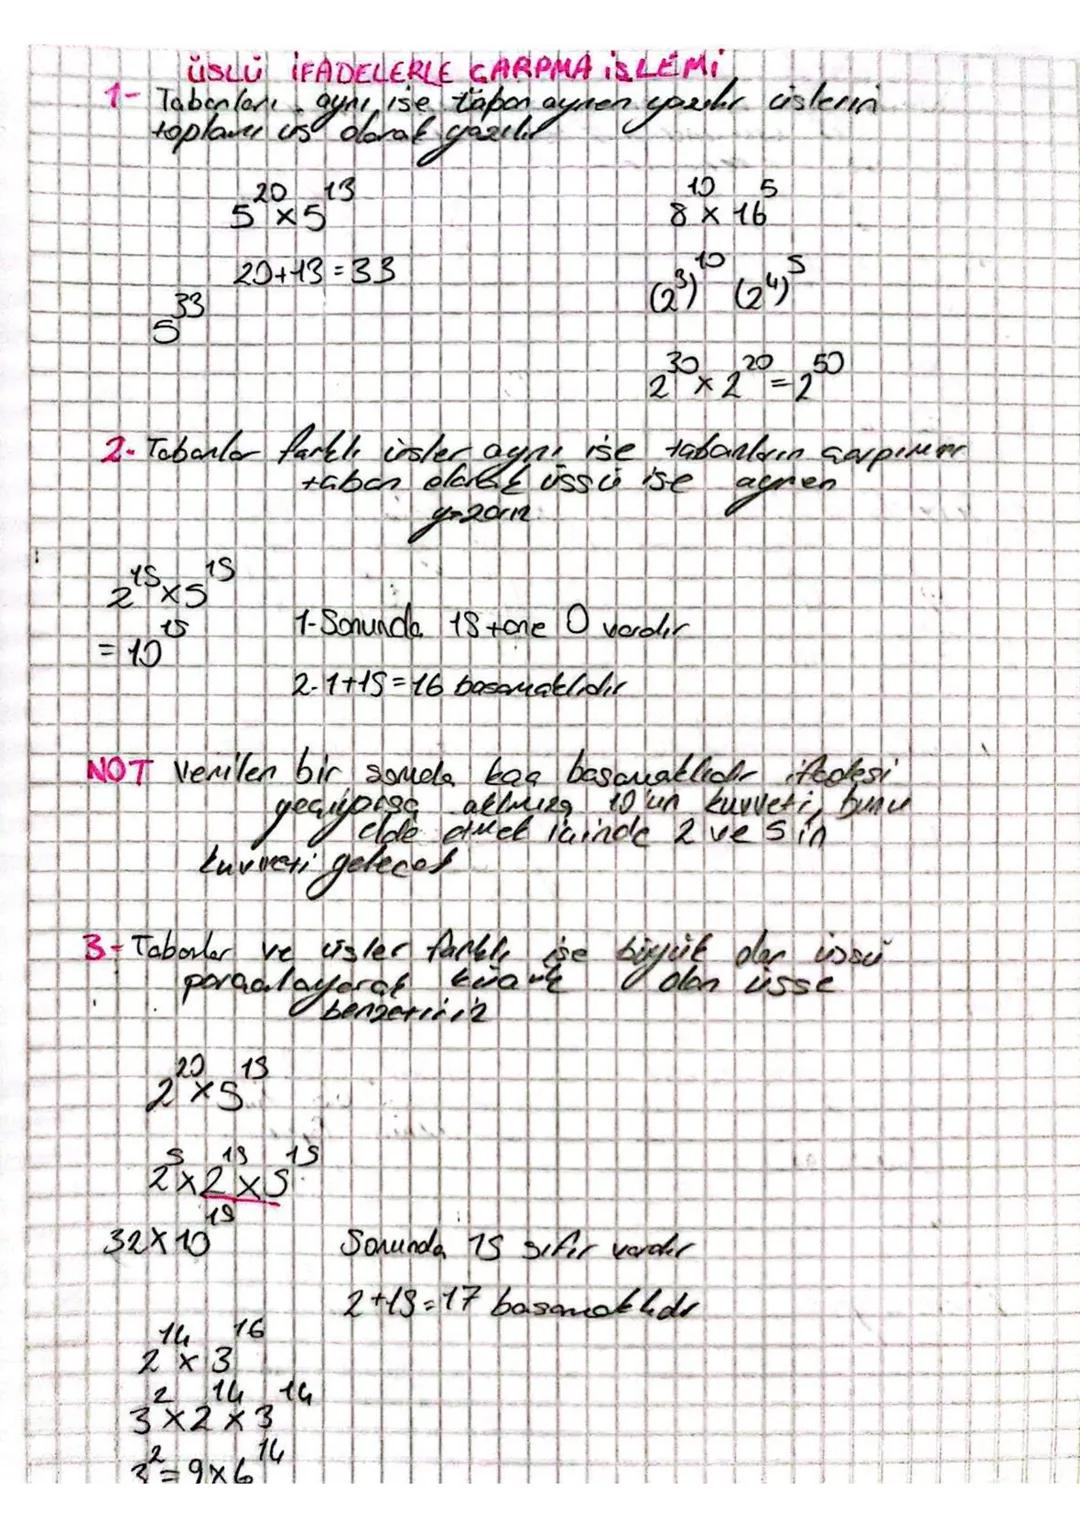 ÜSLÜ İFADELERLE ÇARPMA İŞLEMİ
1- Tabanları aynı ise taban aynen yazılır üslerin
toplamı üs olarak yazılır
5²⁰x5¹³
20+13=33
5³³
8¹⁰ x 16⁵
(2³)¹⁰ (2⁴)⁵
2³⁰ x 2²⁰ = 2⁵⁰
2- Tabanlar farklı üsler aynı ise tabanların çarpımını
taban olarak üssü ise aynen
yazarız
2¹⁵x5¹⁵
= 10¹⁵
1-Sonunda 15 tane 0 vardır
2-1+15=16 basamaklıdır
NOT Verilen bir soruda kaç basamaklıdır ifadesi
geçiyorsa aklımıza 10'un kuvveti, bunu
elde etmek içinde 2 ve 5 in
kuvveti gelecek
3- Tabanlar ve üsler farklı ise büyük olan üssü
parçalayarak küçük olan üsse
benzetiriz
2²⁰x5¹⁵
2⁵x2¹⁵x5¹⁵
32x10¹⁵
Sonunda 15 sıfır vardır
2+15=17 basamaklıdır
2¹⁴ x 3¹⁶
3²x2¹⁴x3¹⁴
3²=9x6¹⁴